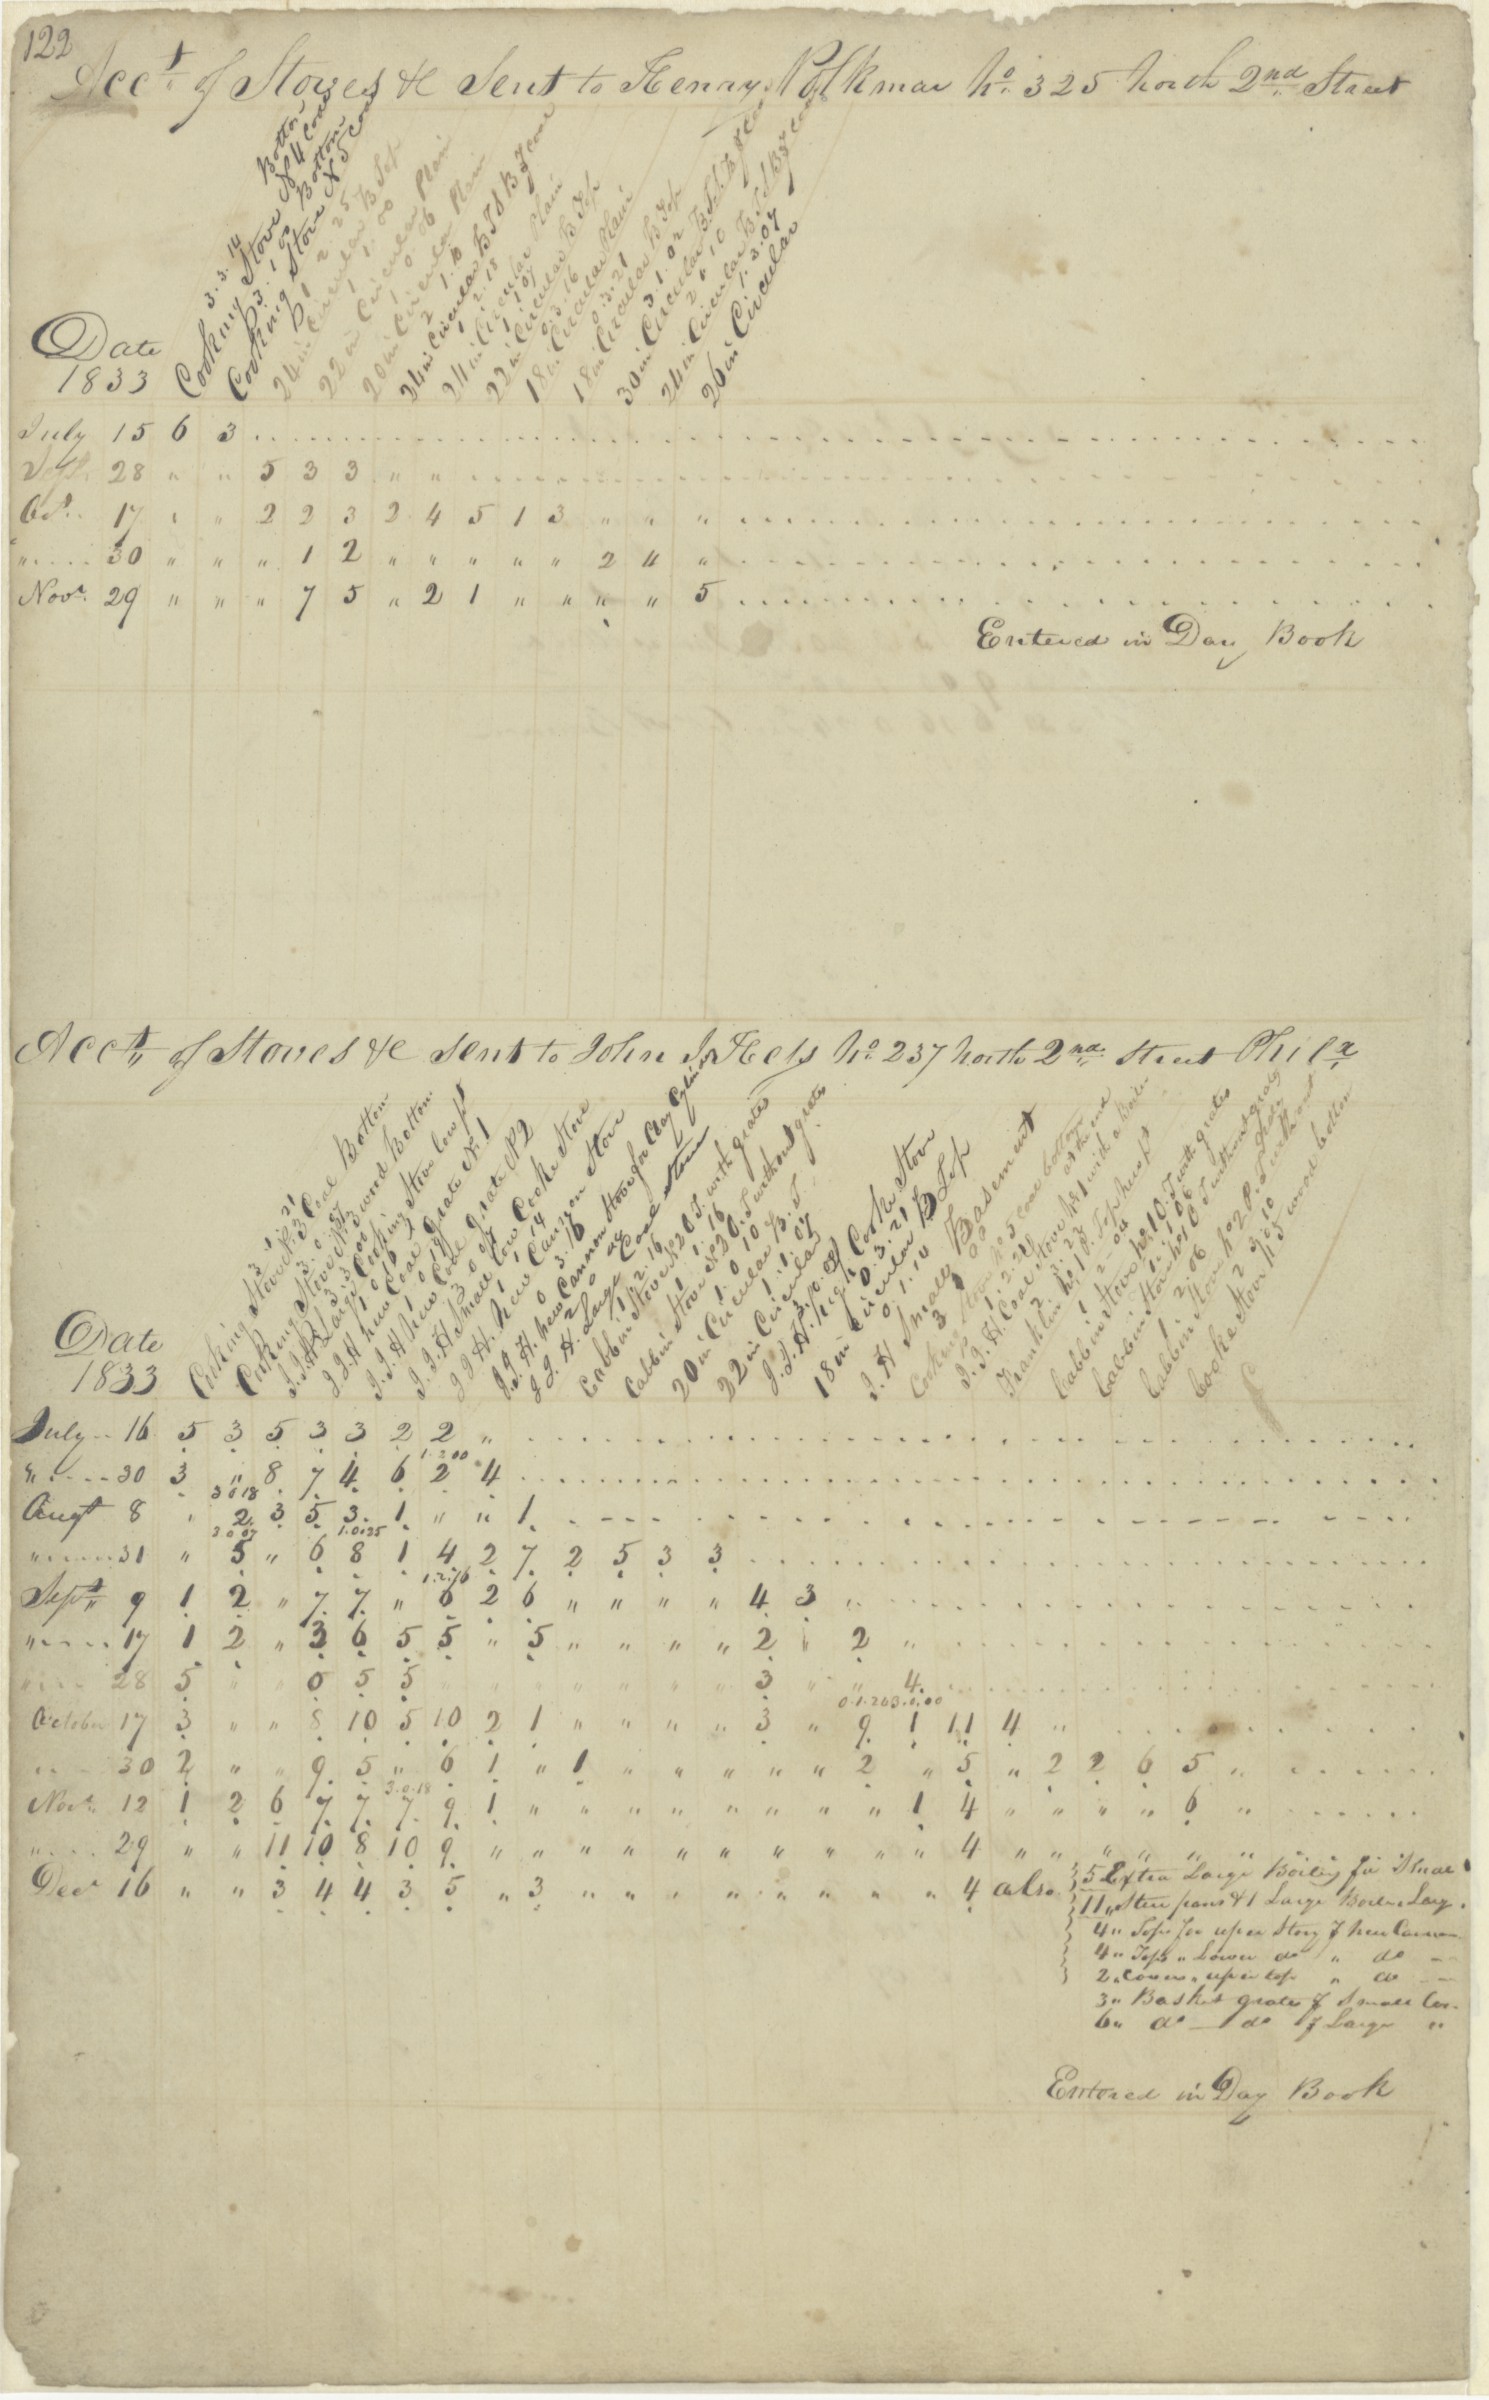 122
Acct of Stoves &c Sent to Henry Polkmar No 325 North 2nd Street
Date
1833
3.3.14
Cooking Stove N 4 Coal Bottom
3.1.00
Cooking Stove N 5 Coal Bottom
2.25
24 in Circular B Top
1.00
22 in Circular Plain
1.0.06
20 in Circular Plain
2.1.10
24 in Circular B T & B
1.2.15
24 in Circular Plain
1.1.07
22 in Circular B Top
0.3.16
18 in Circular Plain
0.3.21
18 in Circular B Top
3.1.02
30 in Circular B T
2.0.10
24 in Circular B T
1.3.07
26 in Circular
July 15 6 3
Sept. 28 " " 5 3 3 " "
Oct. 17 " " 2 2 3 2 4 5 1 3 " " "
" 30 " " " 1 2 " " " " " 2 4 "
Novr. 29 " " " 7 5 " 2 1 " " " " 5
Entered in Day Book
Acct. of Stoves &c Sent to John J. Hess No 237 North 2nd Street Phila
Date
1833
Cooking Stove N. 3 Coal Bottom
Cooking Stove N. 3 wood Bottom
J.J.H Large Cooking Stove
J.J.H new Coal Grate N. 1
J.J.H new Coal Grate N 2
J.J.H Small Low Cooke Stove
J.J.H. new Cannon Stove
J.J.H. new Cannon Stove for Clay Cylinder
J.J.H. Large Coal Stove
Cabbin Stove No 2 O.T. with grates
Cabbin Stove No 2 O.T without grates
20 in Circular B.T.
22 in Circular
J.J.H. high Cooke Stove
18 in Circular B Top
J. H Small Basement
Cooking Stove No 5 Coal bottom
J.J.H. Coal Stove No 1 with a Boiler
Franklin No 1 O. Top
Cabbin Stove No 1 O.T with grates
Cabbin Stove No 1 O T without grates
Cabbin Stove No 2 P. T without
Cooke Stove N 5 wood bottom
July 16 5 3 5 3 3 2 2 "
1.2.00
" 30 3 " 8 7 4 6 2 4
3 0 18
Augt 8 " 2 3 5 3 1 " " 1
3.0.07 1.0.25
" 31 " 5 " 6 8 1 4 2 7 2 5 3 3
1.2.16
Sept. 9 1 2 " 7 7 " 6 2 6 " " " " 4 3 "
" 17 1 2 " 3 6 5 5 " 5 " " " " 2 " 2 "
" 28 5 " " 0 5 5 " " " " " " " 3 " " 4
0.1.26 3.0.00
October 17 3 " " 8 10 5 10 2 1 " " " " 3 " 9 1 11 4 "
" 30 2 " " 9 5 " 6 1 " 1 " " " " " 2 " 5 " 2 2 6 5 "
3.0.18
Novr. 12 1 2 6 7 7 7 9 1 " " " " " " " " 1 4 " " " " 6 "
" 29 " " 11 10 8 10 9 " " " " " " " " " " 4 " " " " " "
Decr 16 " " 3 4 4 3 5 " 3 " " " " " " " " 4 also
5 Extra Large Boiling for
11 " Stew pans & 1 Large Boiler
4 " Tops for uper Story f new Cannon
4 " Tops " Lower do " do
2 " Covers " uper top " do
3 " Basket grates f Small
6 " do do f Large "
Entered in Day Book